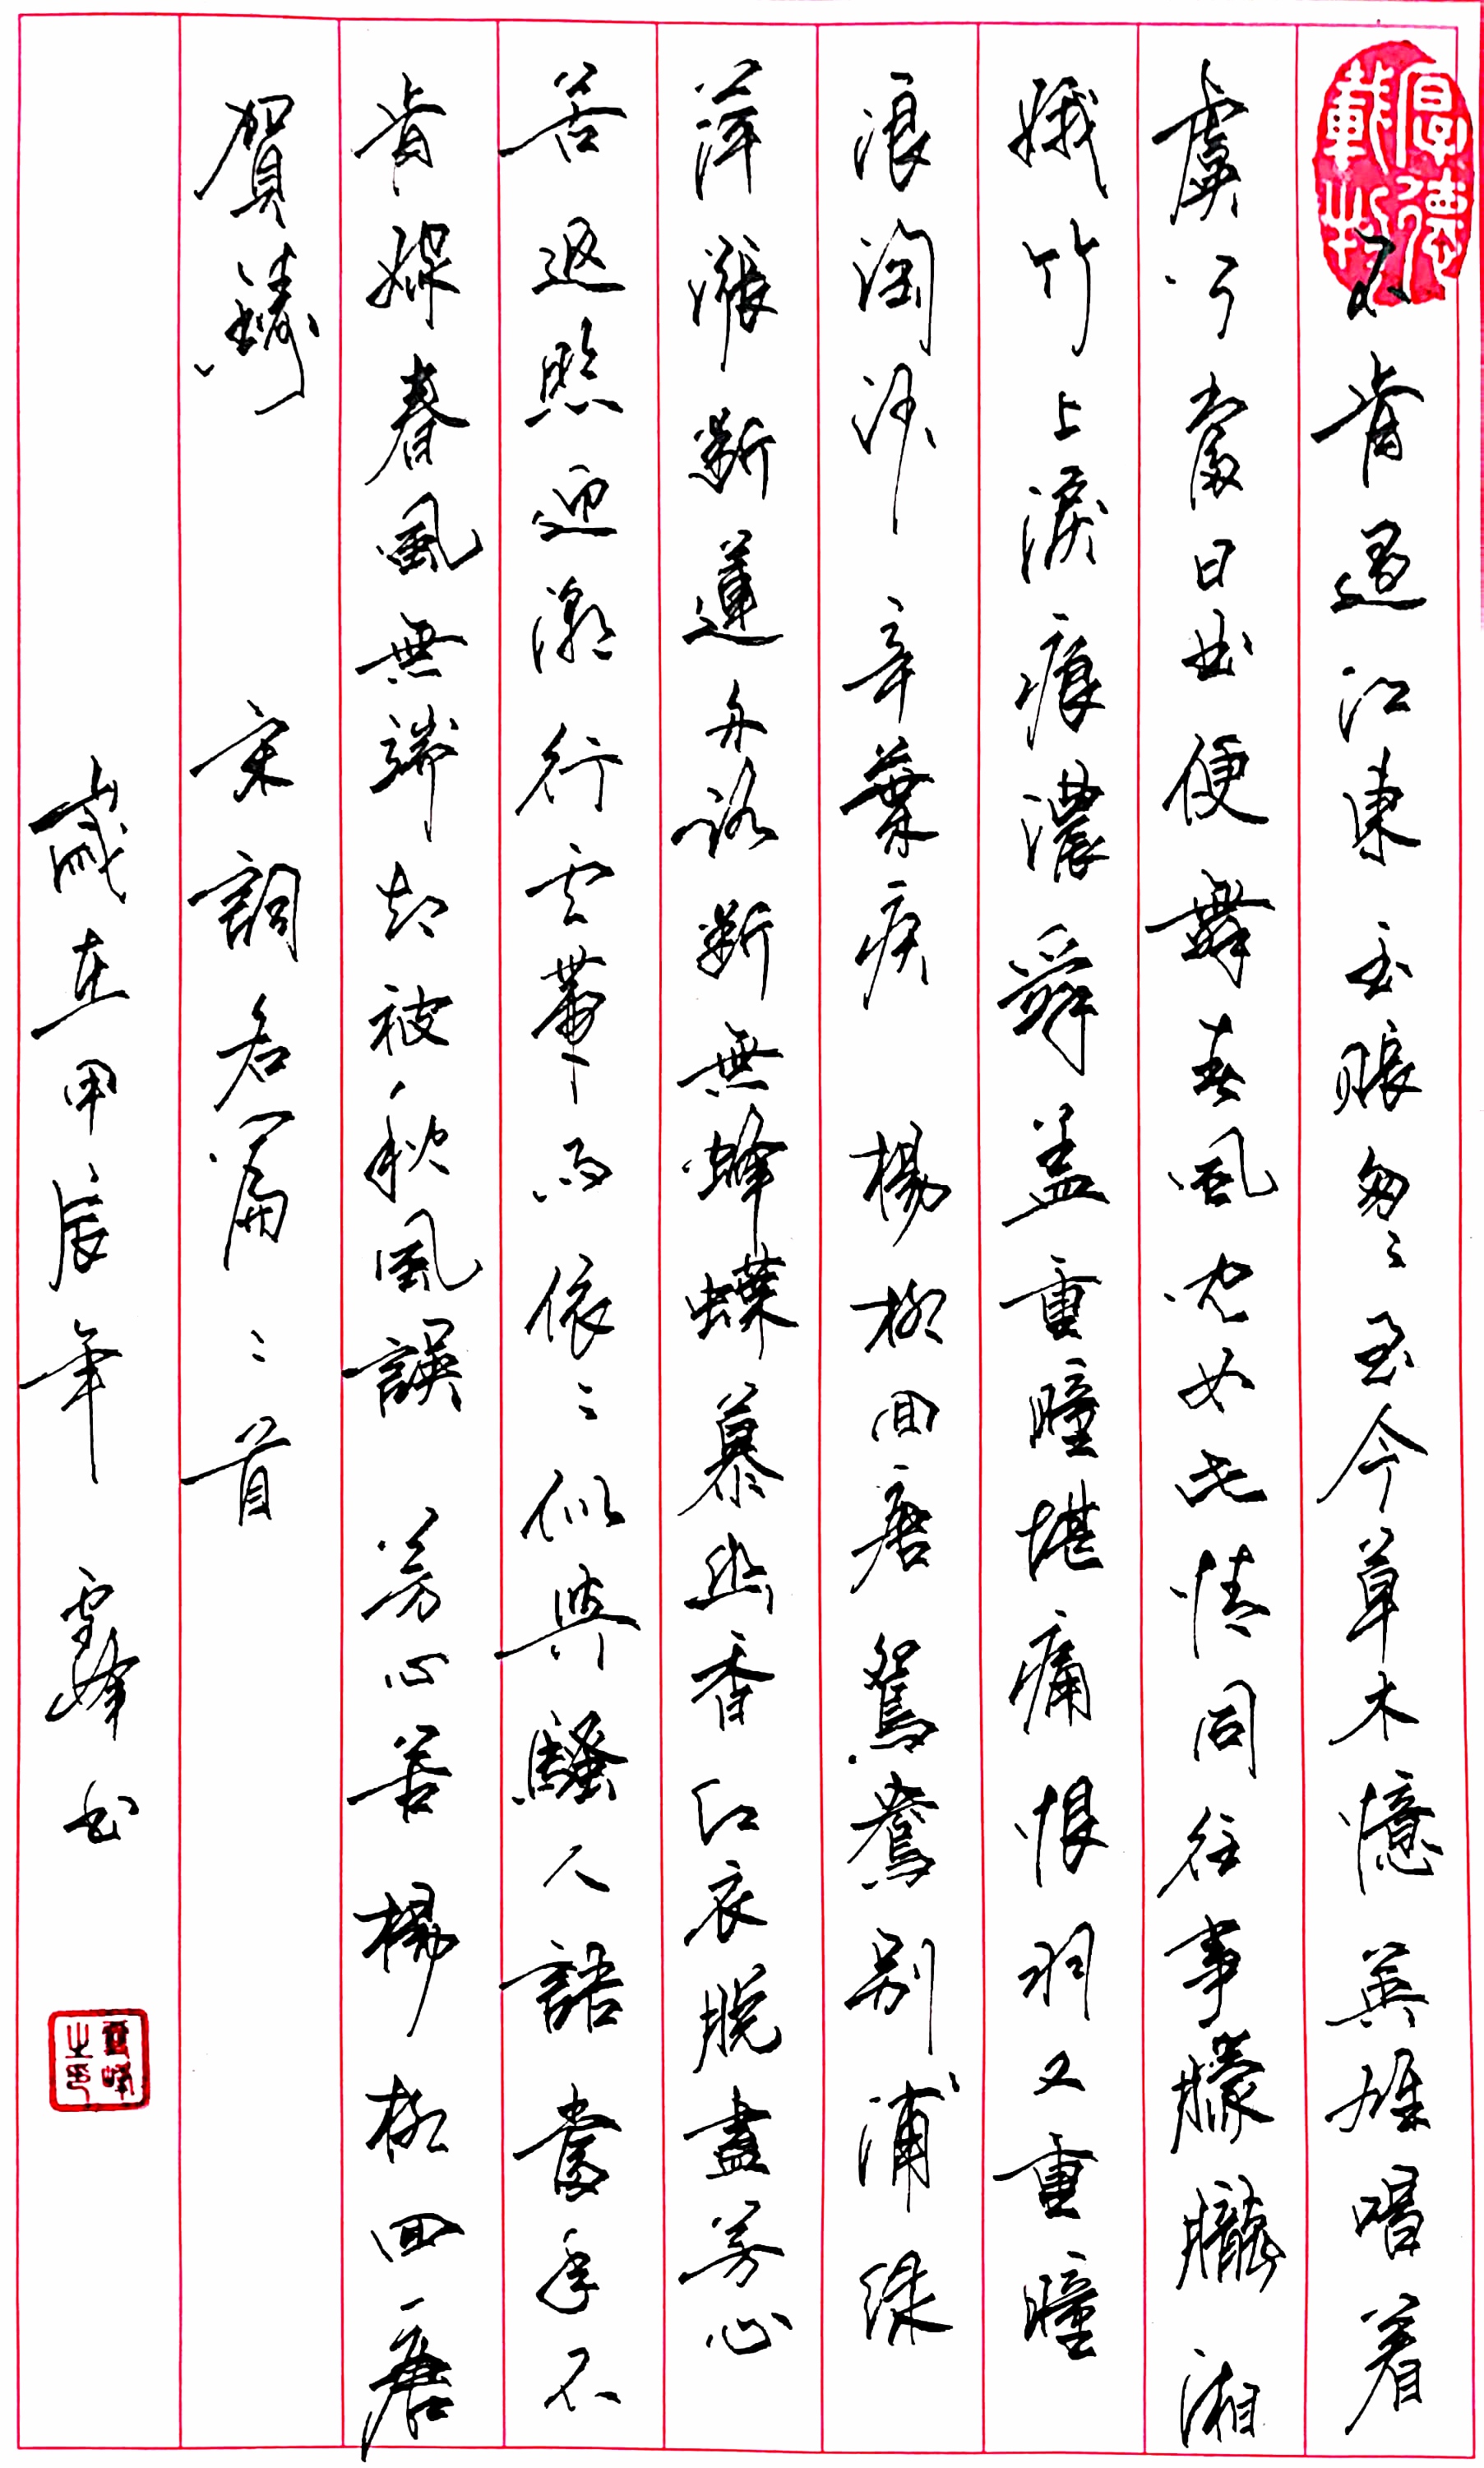 厚德載物
不肯過江東 玉帳匆々 至今草木憶英雄 唱着
虞兮當日曲 便舞春風 兒女此情同 往事朦朧 湘
娥竹上淚痕濃 舜盖重瞳堪痛恨 羽又重瞳
浪淘沙 辛棄疾 楊柳回唐 鴛鴦別浦 綠
萍漲斷蓮舟路 斷無蜂蝶慕幽香 紅衣脫盡芳心
苦 返照迎潮 行云帶雨 依々似與騷人語 當年不
肯嫁春風 無端却被秋風誤 芳心苦 楊柳回唐
賀鑄 宋詞名篇二首
歲在甲辰年 雪峰书
雪峰之印